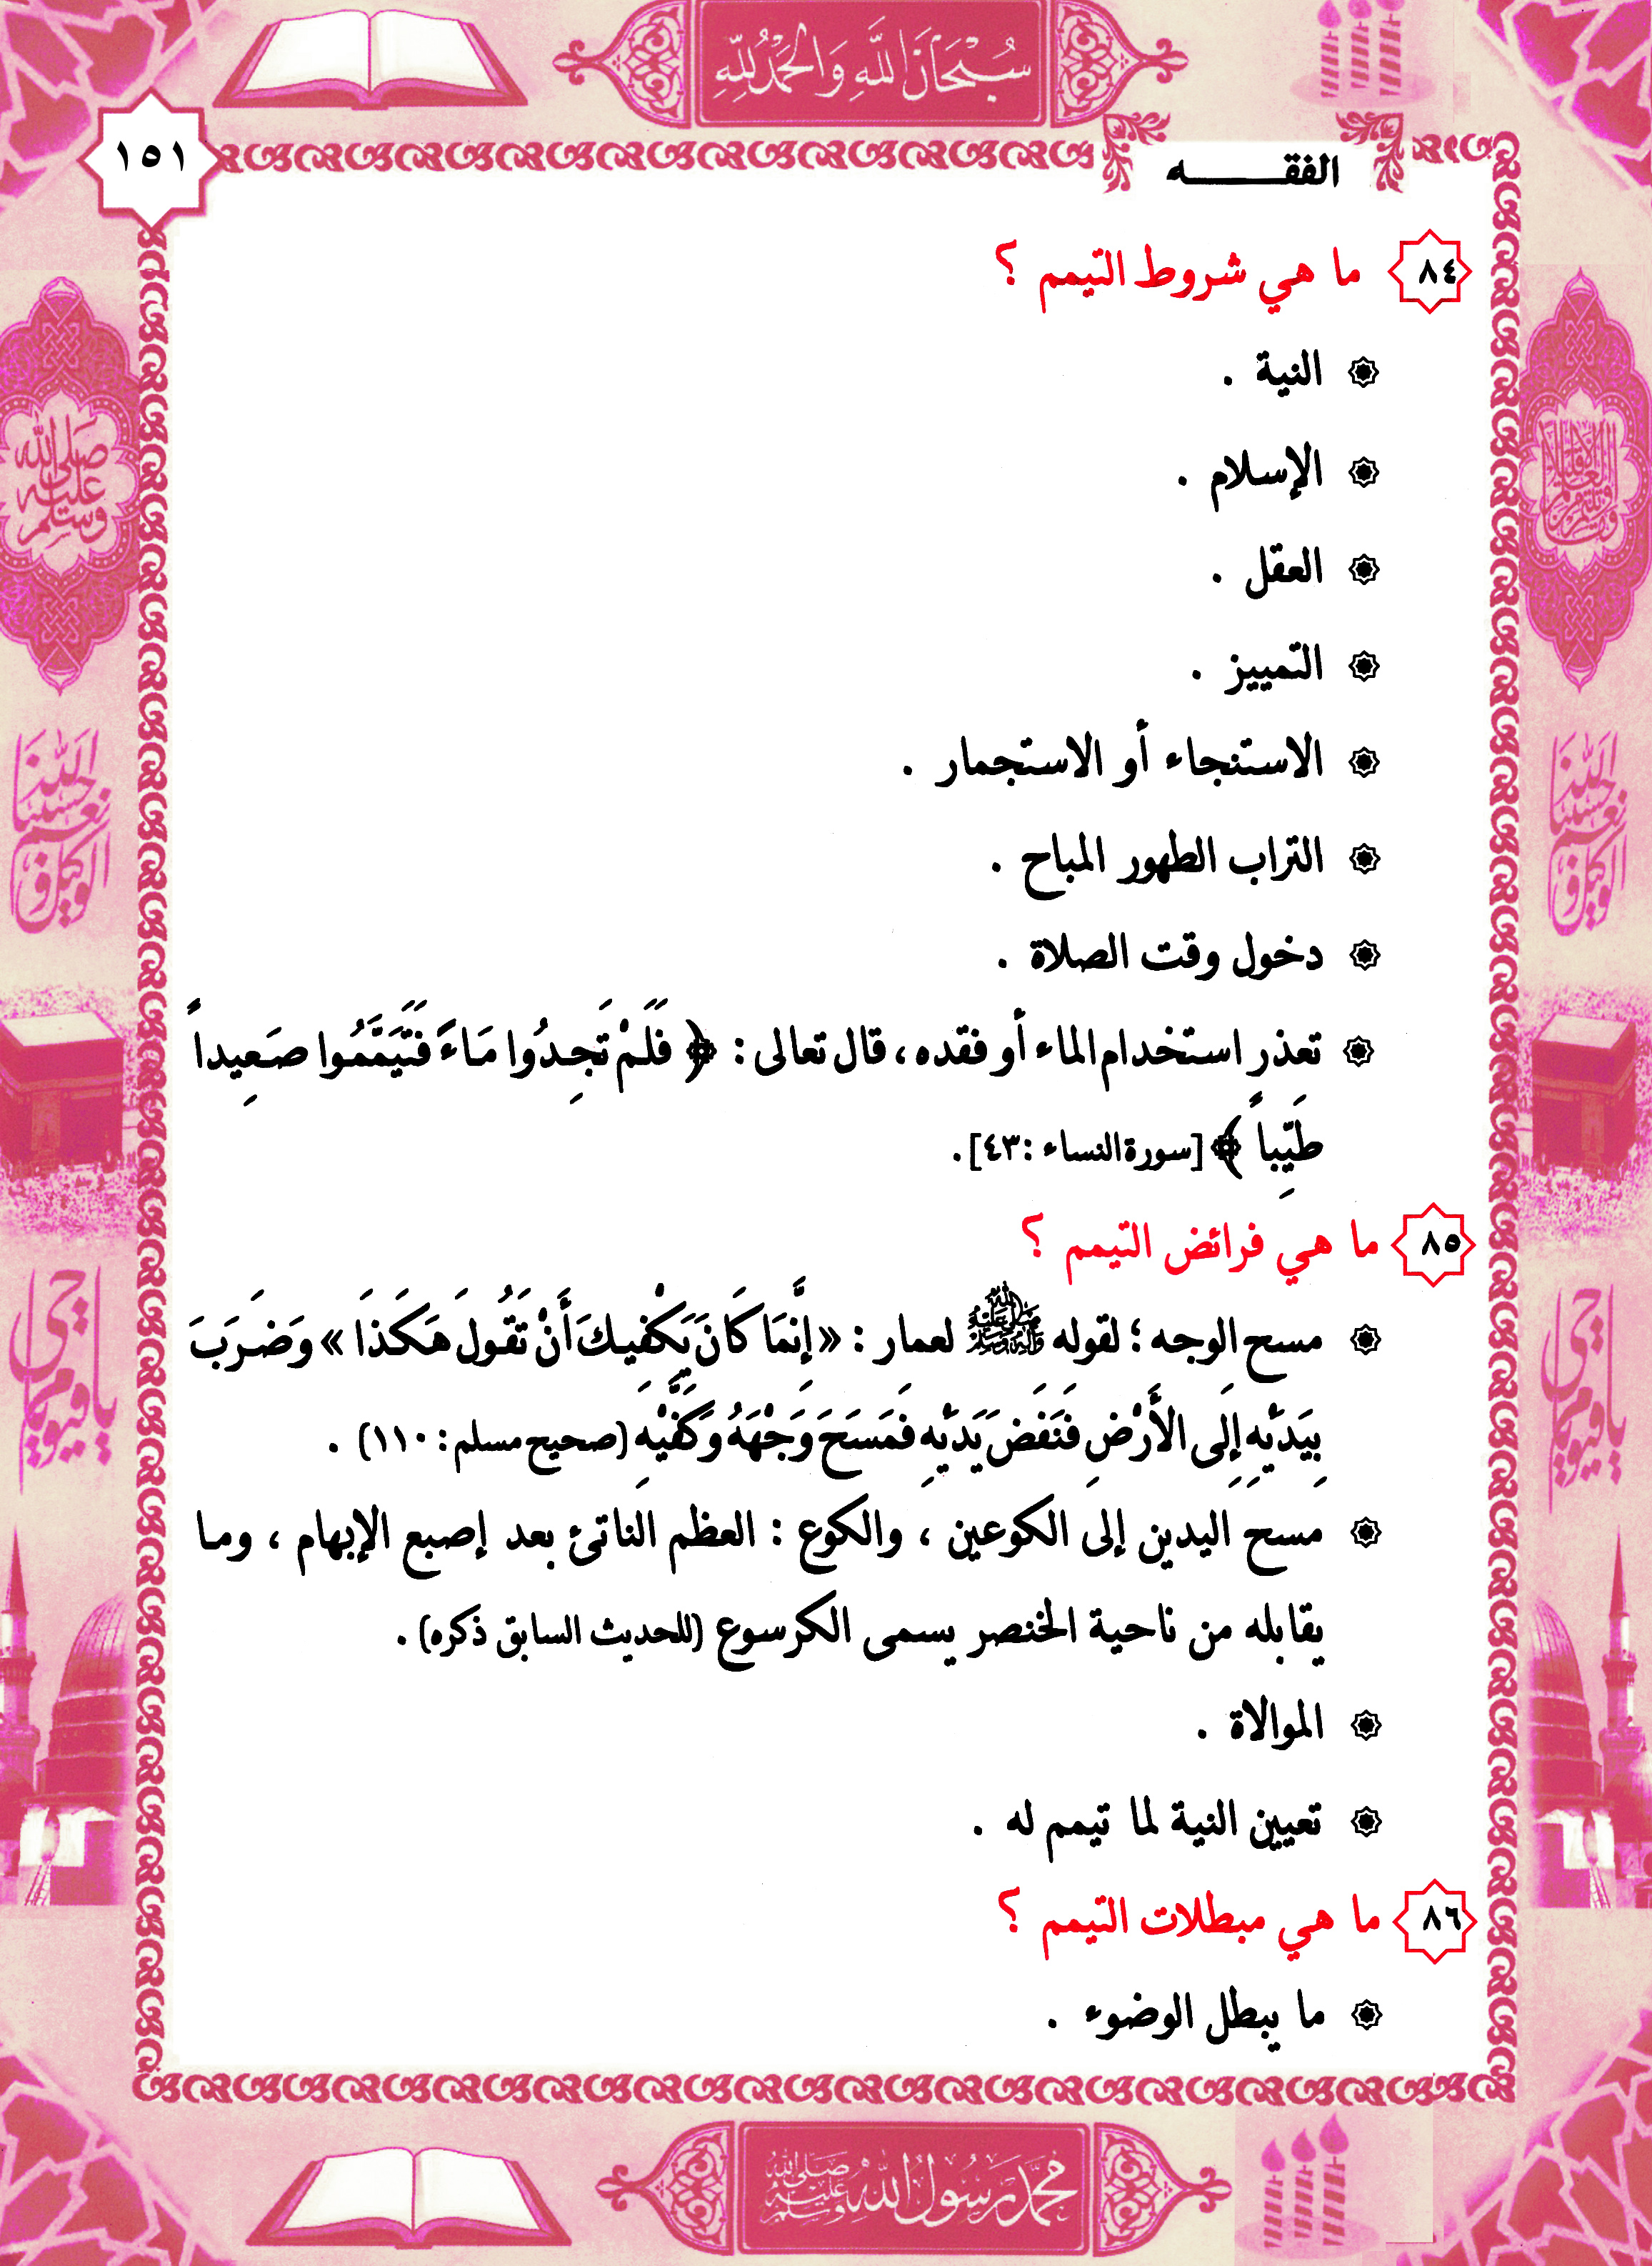 سُبْحَانَ اللَّهِ وَالْحَمْدُ لِلَّهِ
١٥١
الفقـــــــه
٨٤ ما هي شروط التيمم ؟
النية .
الإسلام .
العقل .
التمييز .
الاستنجاء أو الاستجمار .
التراب الطهور المباح .
دخول وقت الصلاة .
تعذر استخدام الماء أو فقده ، قال تعالى : ﴿ فَلَمْ تَجِدُوا مَاءً فَتَيَمَّمُوا صَعِيداً
طَيِّباً ﴾ [سورة النساء : ٤٣] .
٨٥ ما هي فرائض التيمم ؟
مسح الوجه ؛ لقوله ﷺ لعمار : « إِنَّمَا كَانَ يَكْفِيكَ أَنْ تَقُولَ هَكَذَا » وَضَرَبَ
بِيَدَيْهِ إِلَى الأَرْضِ فَنَفَضَ يَدَيْهِ فَمَسَحَ وَجْهَهُ وَكَفَّيْهِ (صحيح مسلم : ١١٠) .
مسح اليدين إلى الكوعين ، والكوع : العظم الناتئ بعد إصبع الإبهام ، وما
يقابله من ناحية الخنصر يسمى الكرسوع (للحديث السابق ذكره) .
الموالاة .
تعيين النية لما تيمم له .
٨٦ ما هي مبطلات التيمم ؟
ما يبطل الوضوء .
صلى الله عليه وسلم
حسبنا الله ونعم الوكيل
حسبنا الله ونعم الوكيل
يا حي يا قيوم
يا حي يا قيوم
محمد رسول الله صلى الله عليه وسلم